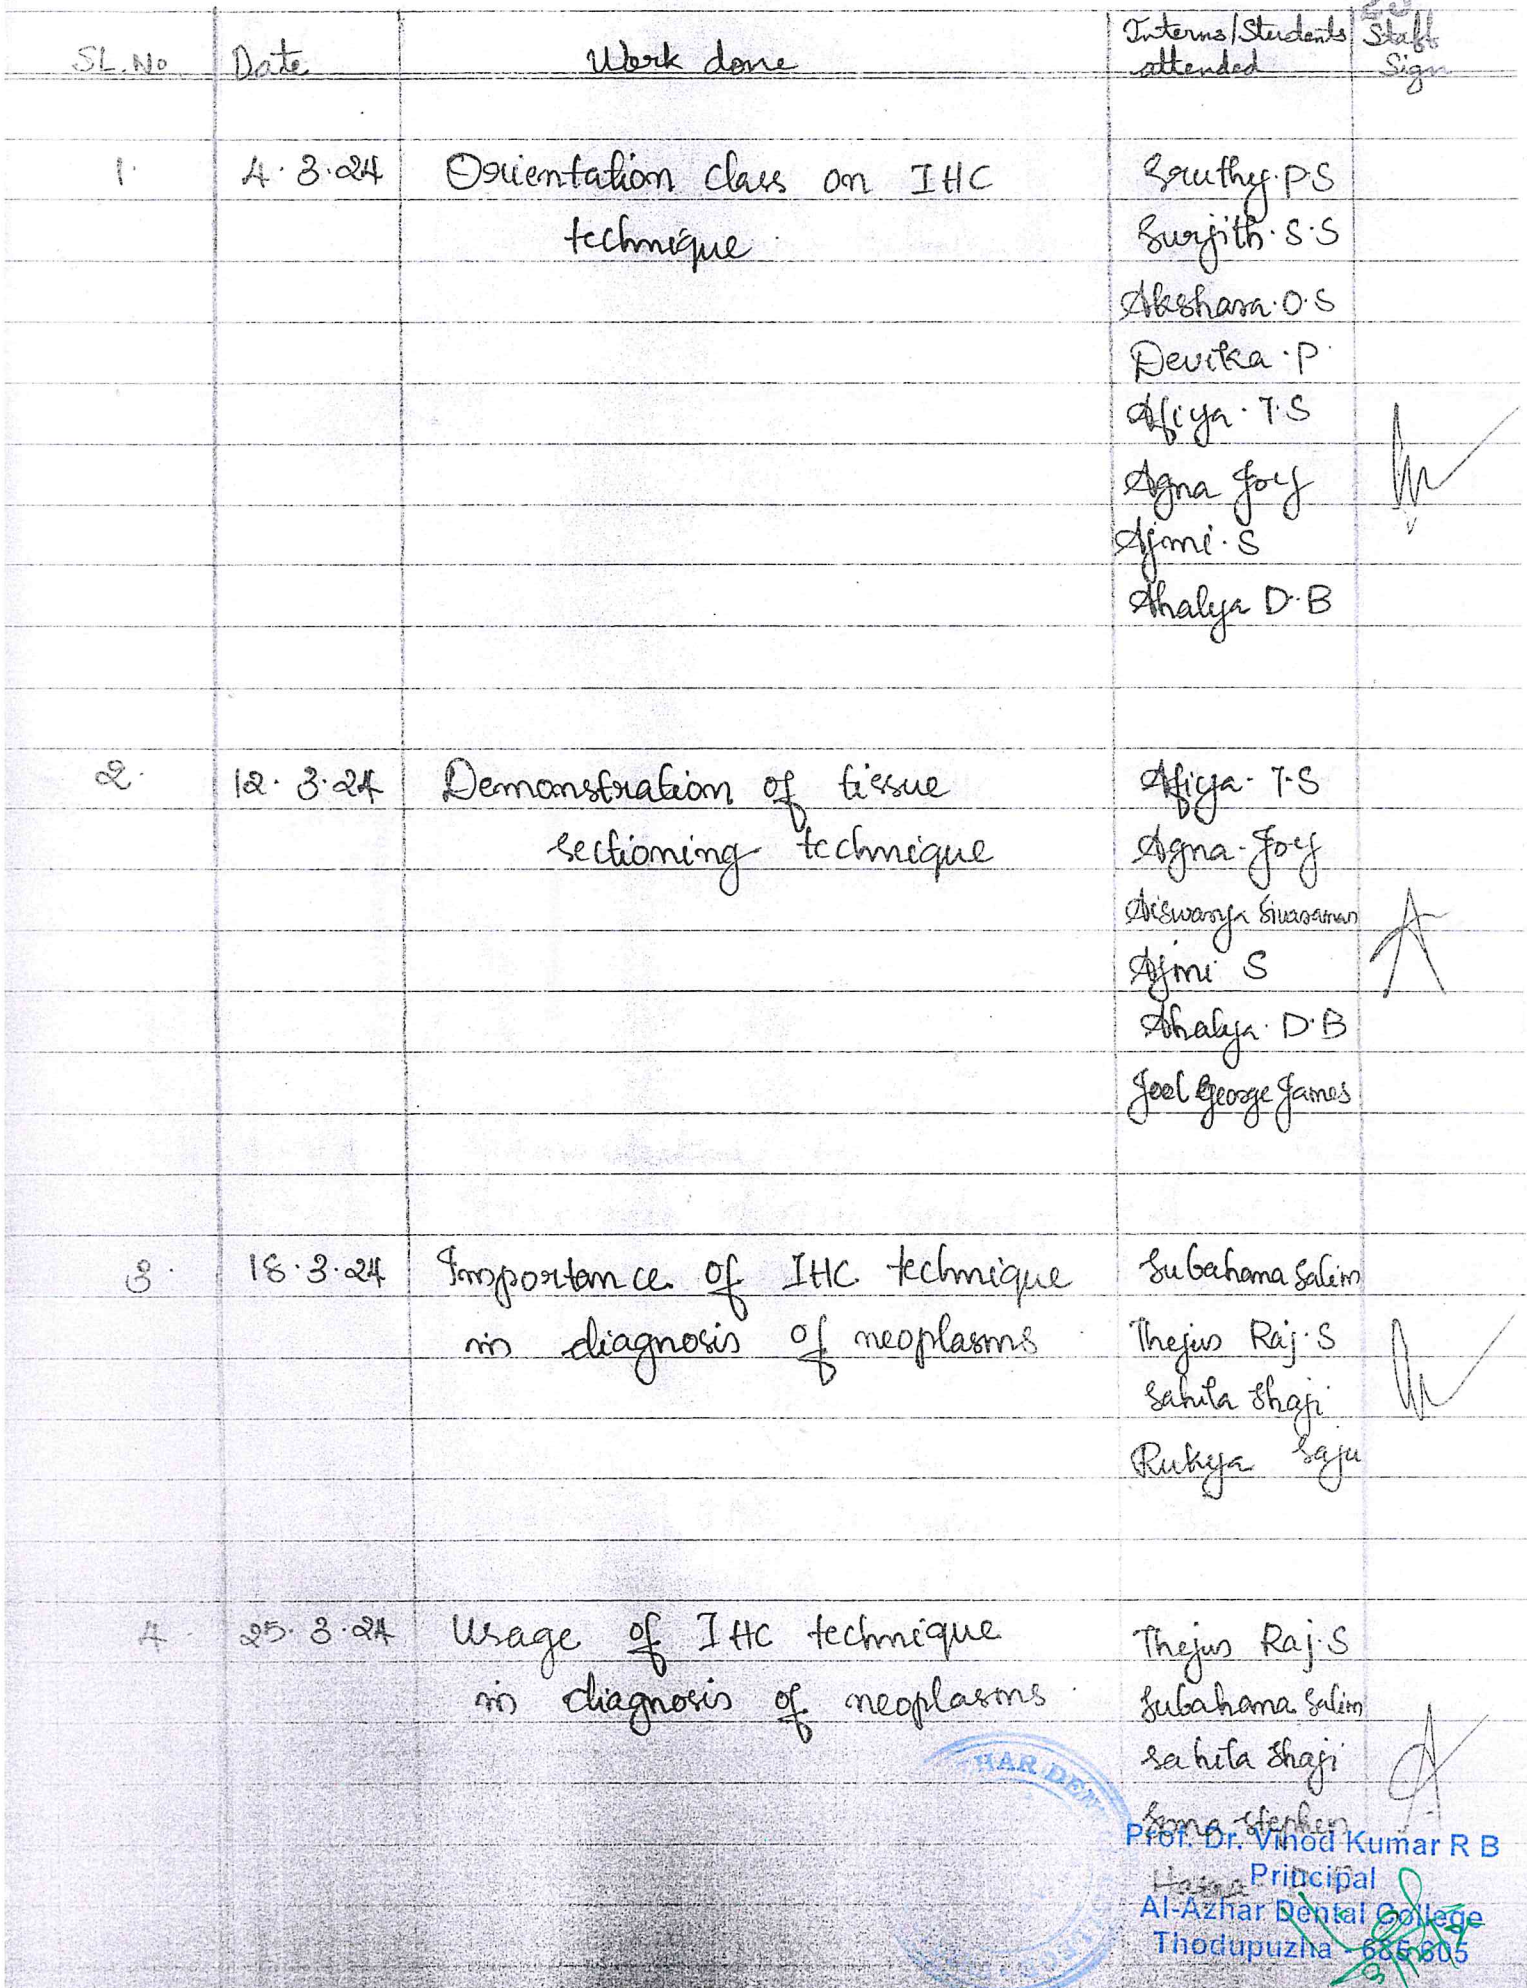 SL.No Date Work done Interns/Students attended Staff Sign
1. 4.3.24 Orientation class on IHC Sruthy.P.S
technique. Surjith.S.S
Akshara.O.S
Devika.P
Afiya.T.S
Agna Joy
Ajmi.S
Ahalya D.B
2. 12.3.24 Demonstration of tissue Afiya.T.S
sectioning technique Agna Joy
Aiswarya Sivaraman
Ajmi S
Ahalya.D.B
Joel George James
3. 18.3.24 Importance of IHC technique Subahana Salim
in diagnosis of neoplasms Thejus Raj.S
Sahila Shaji
Rukya Saju
4. 25.3.24 Usage of IHC technique Thejus Raj.S
in diagnosis of neoplasms. Subahana Salim
Sahila Shaji
Stephen
HAR DEN
Prof. Dr. Vinod Kumar R B
Principal
Al-Azhar Dental College
Thodupuzha - 685 605